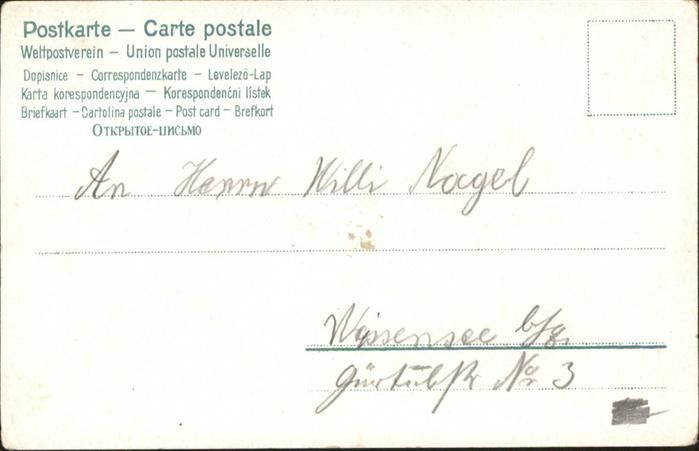 Postkarte — Carte postale
Weltpostverein — Union postale Universelle
Dopisnice — Correspondenzkarte — Levelező-Lap
Karta korespondencyjna — Korespondenčni lístek
Briefkaart — Cartolina postale — Post card — Brefkort
Открытое-письмо
An Herrn Willi Nagel
Weissensee
No 3